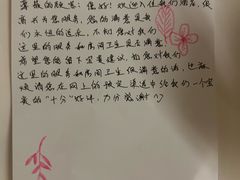 尊敬的顾客：您好！欢迎入住我们酒店，很
高兴为您服务，您的满意是我
们永恒的追求，不知您对我们
这里的服务和房间卫生是否满意，
希望您能留下宝贵建议，如您对我们
这里的服务和房间卫生很满意的话，也麻
烦请您在网上的评定渠道中给我们一个宝
贵的“十分”好评，万分感谢